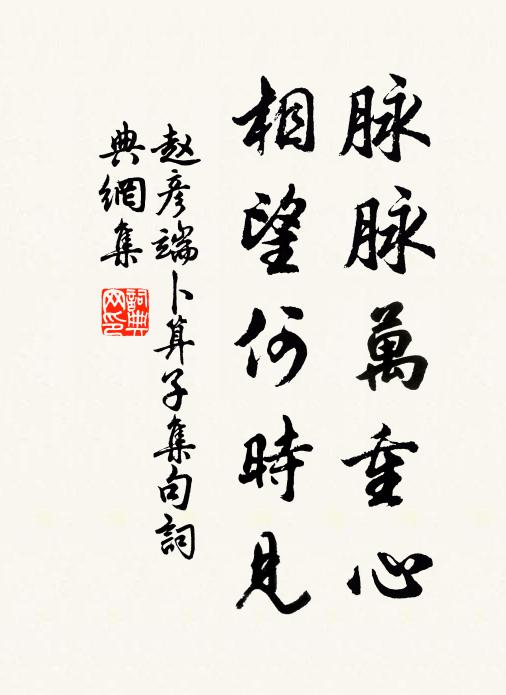 脉脉萬重心
相望何時見
赵彦端卜算子集句詞
典網集
詞典
网印